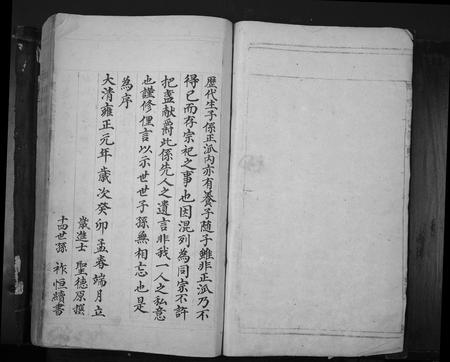 歷代生子係正派內亦有養子隨子雖非正派乃不
得已而存宗祀之事也因混列為同宗不許
把盞献爵此係先人之遺言非我一人之私意
也謹修俚言以示世世子孫無相忘也是
為序
大清雍正元年歲次癸卯孟春端月立
歲進士 聖德原撰
十四世孫 祚恒續書